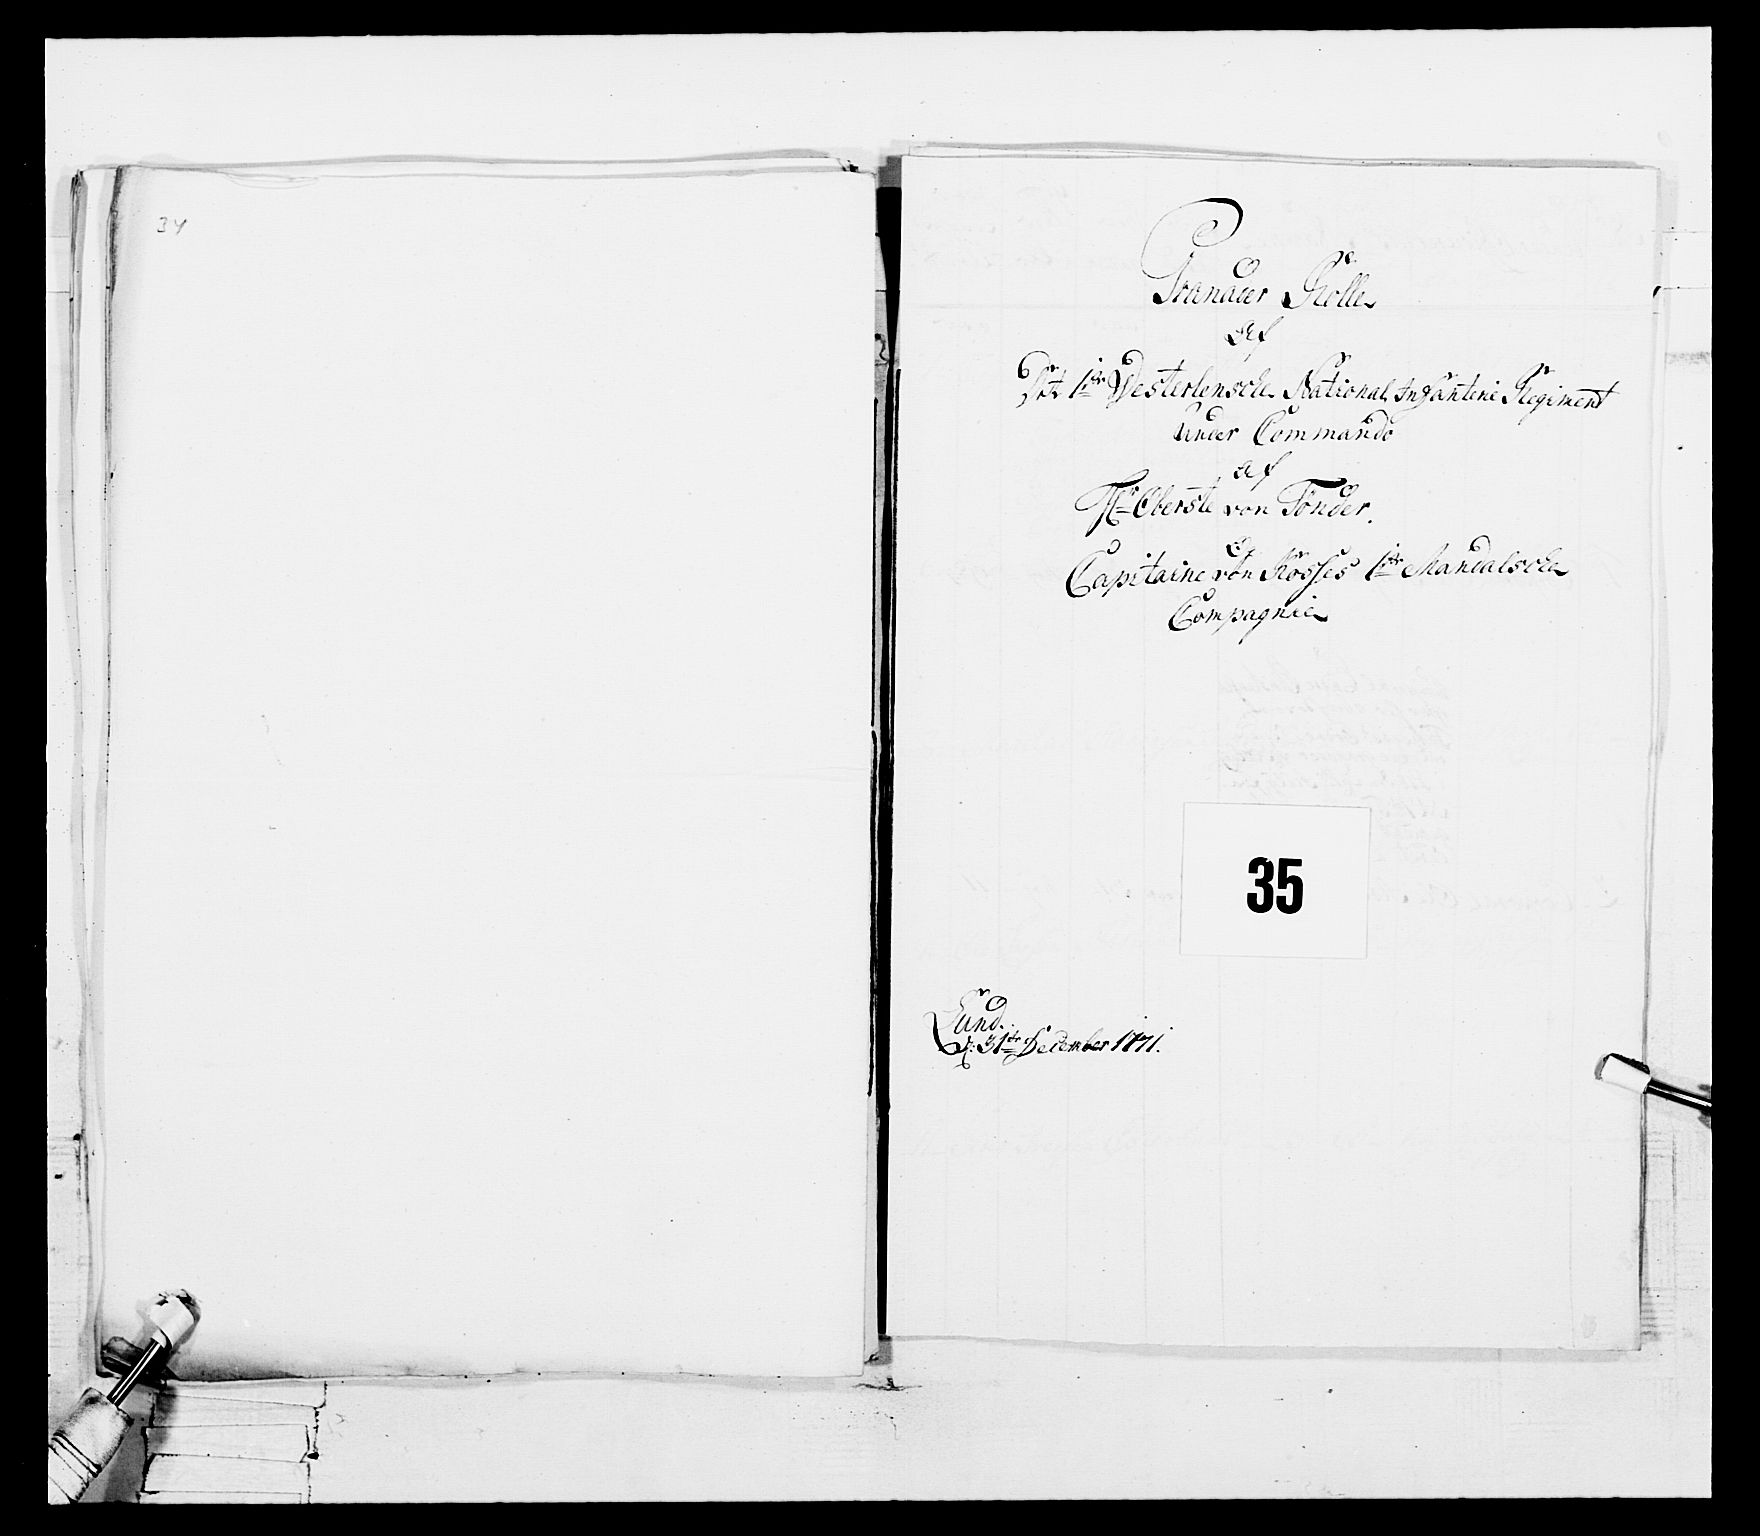 34
Granader Rolle
Af
Det 1ste Westerlenske National Infanterie Regiment
Under Commando
af
Hr Oberste von Tönder.
Af
Capitaine von Kösses 1ste Mandalske
Compagnie
35
Lund.
d: 31te December 1771.